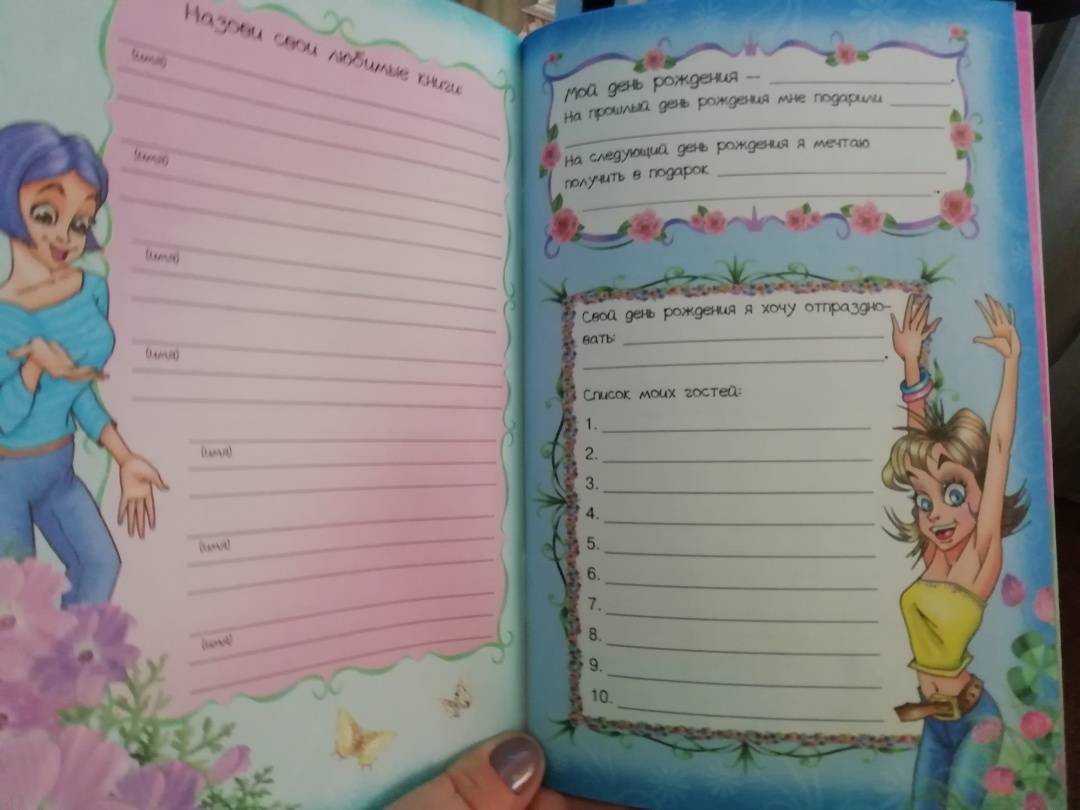 Назови свои любимые книги:
(имя)
(имя)
(имя)
(имя)
(имя)
(имя)
(имя)
Мой день рождения —
На прошлый день рождения мне подарили
На следующий день рождения я мечтаю
получить в подарок
Свой день рождения я хочу отпраздно-
вать:
Список моих гостей:
1.
2.
3.
4.
5.
6.
7.
8.
9.
10.